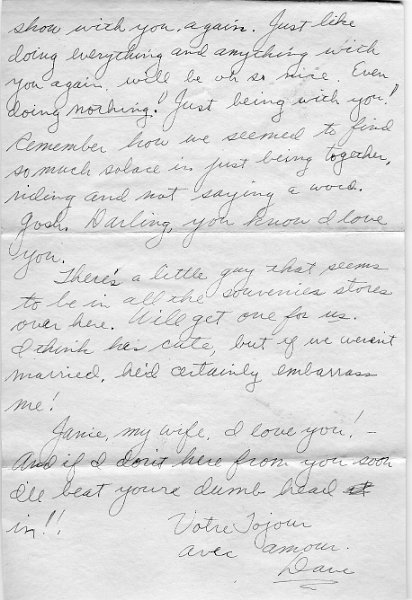 show with you again. Just like
doing everything and anything with
you again, will be oh so nice. Even
doing nothing! Just being with you!
Remember how we seemed to find
so much solace in just being together,
riding and not saying a word.
Gosh, Darling, you know I love
you.
There's a little guy that seems
to be in all the souvenies stores
over here. Will get one for us.
I think has cute, but if we weren't
married, he'd certainly embarrass
me!
Janie, my wife, I love you! –
And if I don't here from you soon
I'll beat youre dumb head
in!!
Votre Tojour
avec amour.
Dave